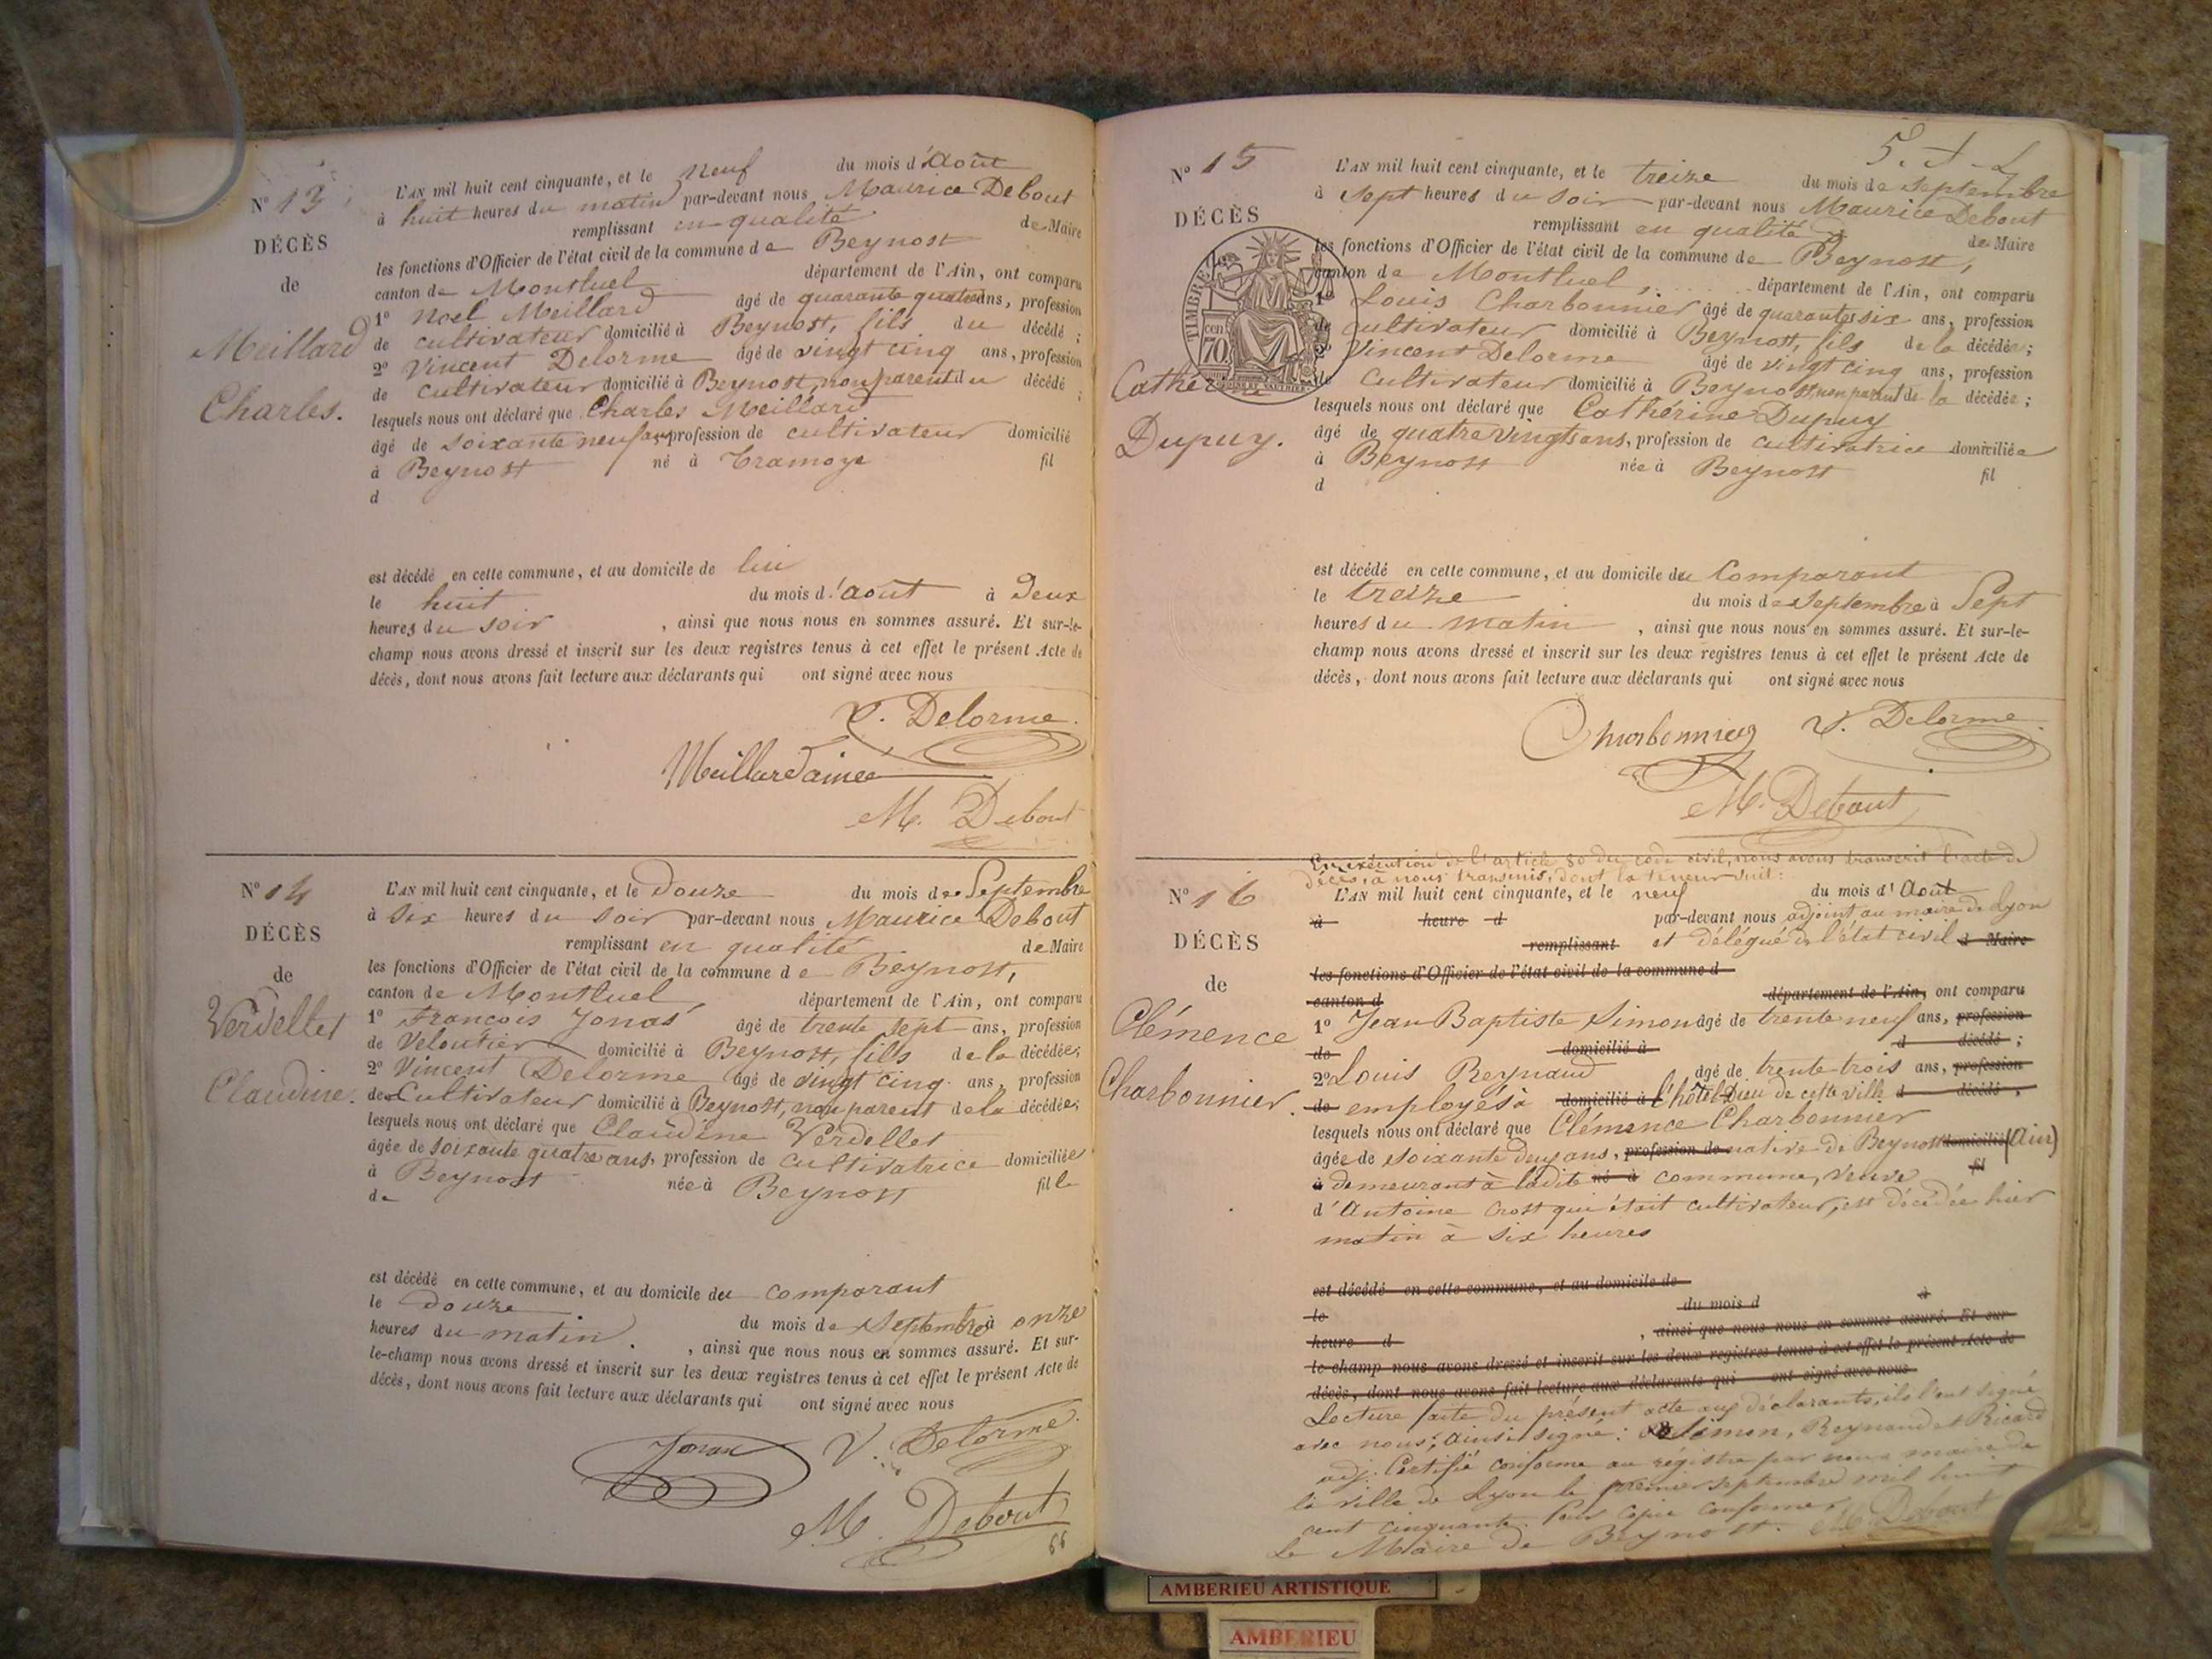 N° 13
DÉCÈS
de
Meillard
Charles.
L'AN mil huit cent cinquante, et le neuf du mois d'Août
à huit heures du matin par-devant nous Maurice Debout
remplissant en qualité de Maire
les fonctions d'Officier de l'état civil de la commune de Beynost
canton de Montluel département de l'Ain, ont comparu
1° Noel Meillard âgé de quarante quatre ans, profession
de cultivateur domicilié à Beynost, fils du décédé ;
2° Vincent Delorme âgé de vingt cinq ans, profession
de cultivateur domicilié à Beynost, non parent du décédé ;
lesquels nous ont déclaré que Charles Meillard
âgé de soixante neuf ans profession de cultivateur domicilié
à Beynost né à Tramoye fil
d
est décédé en cette commune, et au domicile de lui
le huit du mois d'août à Deux
heures du soir , ainsi que nous nous en sommes assuré. Et sur-le-
champ nous avons dressé et inscrit sur les deux registres tenus à cet effet le présent Acte de
décès, dont nous avons fait lecture aux déclarants qui ont signé avec nous
V. Delorme.
Meillard ainée
M. Debout
N° 14
DÉCÈS
de
Verdellet
Claudine.
L'AN mil huit cent cinquante, et le Douze du mois de Septembre
à six heures du soir par-devant nous Maurice Debout
remplissant en qualité de Maire
les fonctions d'Officier de l'état civil de la commune de Beynost,
canton de Montluel, département de l'Ain, ont comparu
1° François Jonas âgé de trente sept ans, profession
de Veloutier domicilié à Beynost, fils de la décédée;
2° Vincent Delorme âgé de vingt cinq ans, profession
de Cultivateur domicilié à Beynost, non parent de la décédée;
lesquels nous ont déclaré que Claudine Verdellet
âgée de soixante quatre ans, profession de Cultivatrice domiciliée
à Beynost née à Beynost fille
de
est décédé en cette commune, et au domicile du comparant
le douze du mois de Septembre à onze
heures du matin. , ainsi que nous nous en sommes assuré. Et sur-
le-champ nous avons dressé et inscrit sur les deux registres tenus à cet effet le présent Acte de
décès, dont nous avons fait lecture aux déclarants qui ont signé avec nous
Jonas V. Delorme.
M. Debout
66
N° 15
DÉCÈS
TIMBRE
70 cen
Catherine
Dupuy.
L'AN mil huit cent cinquante, et le treize du mois de Septembre
à sept heures du soir par-devant nous Maurice Debout
remplissant en qualité de Maire
les fonctions d'Officier de l'état civil de la commune de Beynost,
canton de Montluel, département de l'Ain, ont comparu
1° Louis Charbonnier âgé de quarante six ans, profession
de cultivateur domicilié à Beynost, fils de la décédée;
2° Vincent Delorme âgé de vingt cinq ans, profession
de Cultivateur domicilié à Beynost, non parent de la décédée;
lesquels nous ont déclaré que Cathérine Dupuy
âgé de quatre vingts ans, profession de cultivatrice domiciliée
à Beynost née à Beynost fil
d
est décédé en cette commune, et au domicile du Comparant
le treize du mois de Septembre à Sept
heures du matin , ainsi que nous nous en sommes assuré. Et sur-le-
champ nous avons dressé et inscrit sur les deux registres tenus à cet effet le présent Acte de
décès, dont nous avons fait lecture aux déclarants qui ont signé avec nous
Charbonnier V. Delorme
M. Debout
En exécution de l'article 80 du code civil, nous avons transcrit l'acte de
décès, à nous transmis, dont la teneur suit:
N° 16
DÉCÈS
de
Clémence
Charbonnier.
L'AN mil huit cent cinquante, et le neuf du mois d'Août
à heure d par-devant nous adjoint au maire de Lyon
remplissant et délégué à l'état civil d Maire
les fonctions d'Officier de l'état civil de la commune d
canton d département de l'Ain, ont comparu
1° Jean Baptiste Simon âgé de trente neuf ans, profession
de domicilié à d décédé ;
2° Louis Reynaud âgé de trente trois ans, profession
de employés à domicilié à l'hôtel Dieu de cette ville d décédé ,
lesquels nous ont déclaré que Clémence Charbonnier
âgée de soixante deux ans, profession de native de Beynost domicilié (Ain)
à demeurant à ladite né à commune, veuve fil
d'Antoine Crost qui était cultivateur, est décédée hier
matin à six heures
est décédé en cette commune, et au domicile de
le du mois d à
heure d , ainsi que nous nous en sommes assuré. Et sur
le champ nous avons dressé et inscrit sur les deux registres tenus à cet effet le présent Acte de
décès, dont nous avons fait lecture aux déclarants qui ont signé avec nous
Lecture faite du présent acte aux déclarants, ils l'ont signé
avec nous, ainsi signé: Simon, Reynaud et Ricard
adj. Certifié conforme au régistre par nous maire de
la ville de Lyon le premier septembre mil huit
cent cinquante. Pour copie conforme,
Le Maire de Beynost. M. Debout
AMBERIEU ARTISTIQUE
AMBERIEU